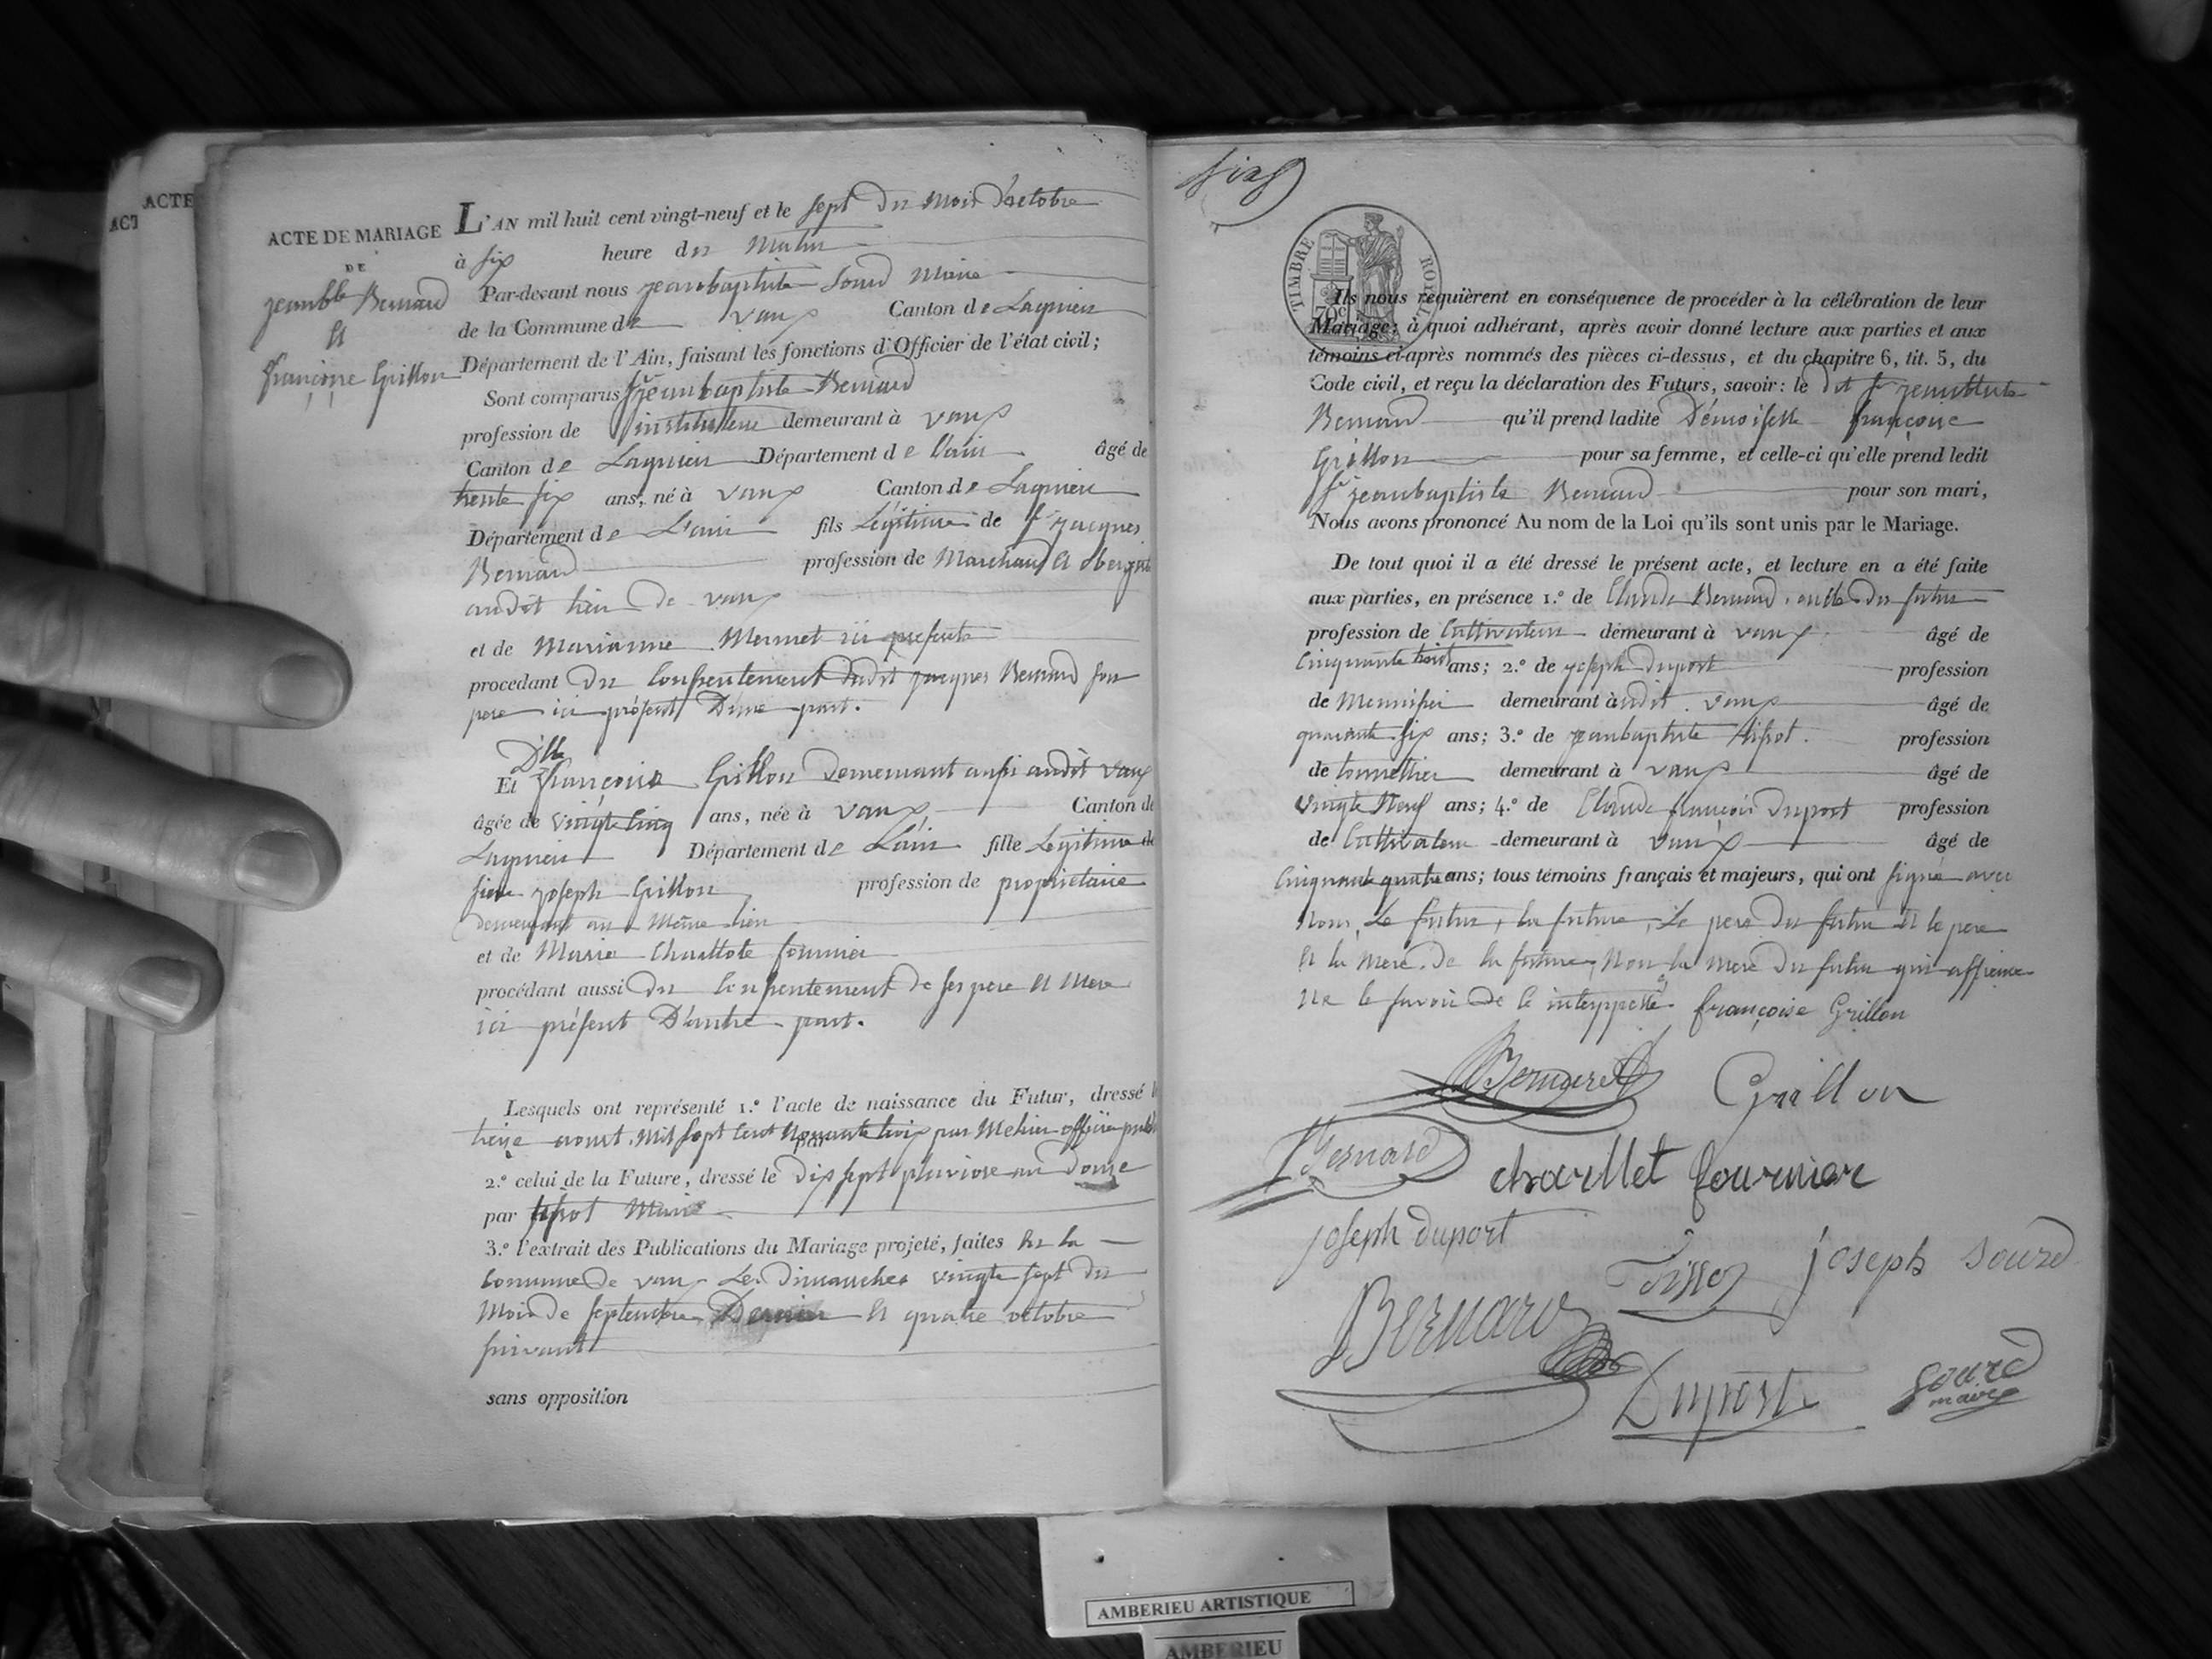 ACTE
ACT
ACTE DE MARIAGE
DE
jeanbte Bernard
Et
françoise Grillon
L'AN mil huit cent vingt-neuf et le sept du mois d'octobre
à six heure du Matin
Par-devant nous jeanbaptiste Sourd Maire
de la Commune de vaux Canton de Lagnieu
Département de l'Ain, faisant les fonctions d'Officier de l'état civil;
Sont comparus Sr jeanbaptiste Bernard
profession de instituteur demeurant à vaux
Canton de Lagnieu Département de l'ain âgé de
trente six ans, né à vaux Canton de Lagnieu
Département de L'ain fils Légitime de Sr jacques
Bernard profession de Marchand Et
audit lieu de vaux
et de Marianne Mermet ici présente
procédant du Consentement dudit jacques Bernard son
pere ici présent D'une part.
Dlle
Et françoise Grillon Demeurant aussi audit vaux
âgée de vingte cinq ans, née à vaux Canton de
Lagnieu Département de L'ain fille Légitime de
sieur joseph Grillon profession de propriétaire
demeurant au Même lieu
et de Marie Charllote fournier
procédant aussi du Consentement de ses pere Et Mere
ici présent D'autre part.
Lesquels ont représenté 1.º l'acte de naissance du Futur, dressé le
treize aoust mil sept Cent Nonante trois par officier
par
2.º celui de la Future, dressé le dix sept pluviose an douze
par tissot Maire
3.º l'extrait des Publications du Mariage projeté, faites En la
Commune De vaux Les Dimanches vingte sept du
Mois de septembre Dernier Et quatre octobre
suivant
sans opposition
TIMBRE ROYAL
70c
Ils nous requièrent en conséquence de procéder à la célébration de leur
Mariage; à quoi adhérant, après avoir donné lecture aux parties et aux
témoins ci-après nommés des pièces ci-dessus, et du chapitre 6, tit. 5, du
Code civil, et reçu la déclaration des Futurs, savoir: le dit Sr jeanbtiste
Bernard qu'il prend ladite Démoiselle françoise
Grillon pour sa femme, et celle-ci qu'elle prend ledit
Sr jeanbaptiste Bernard pour son mari,
Nous avons prononcé Au nom de la Loi qu'ils sont unis par le Mariage.
De tout quoi il a été dressé le présent acte, et lecture en a été faite
aux parties, en présence 1.º de Claude Bernard, oncle du futur
profession de Cultivateur demeurant à vaux âgé de
Cinquante trois ans; 2.º de joseph Duport profession
de Menuisier demeurant à udit vaux âgé de
quarante six ans; 3.º de jeanbaptiste tissot profession
de tonnellier demeurant à vaux âgé de
vingte Neuf ans; 4.º de Claude françois Duport profession
de Cultivateur demeurant à vaux âgé de
Cinquante quatre ans; tous témoins français et majeurs, qui ont signé avec
Nous, Le futur, la future, Le pere du futur Et le pere
Et la Mere de la future, Non la Mere du futur qui affirme
Ne le savoir de ce interppellé françoise Grillon
Bernard Grillon
Bernard charllet fournier
joseph duport
Tissot joseph sourd
Bernard
Duport
sourd
maire
AMBERIEU ARTISTIQUE
AMBERIEU